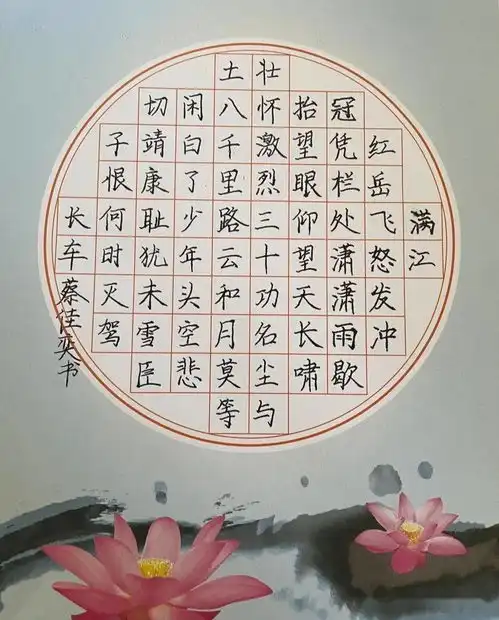 满江
红岳飞怒发冲
冠凭栏处潇潇雨歇
抬望眼仰望天长啸
壮怀激烈三十功名尘与
土八千里路云和月莫等
闲白了少年头空悲
切靖康耻犹未雪臣
子恨何时灭驾
长车
蔡佳奕书